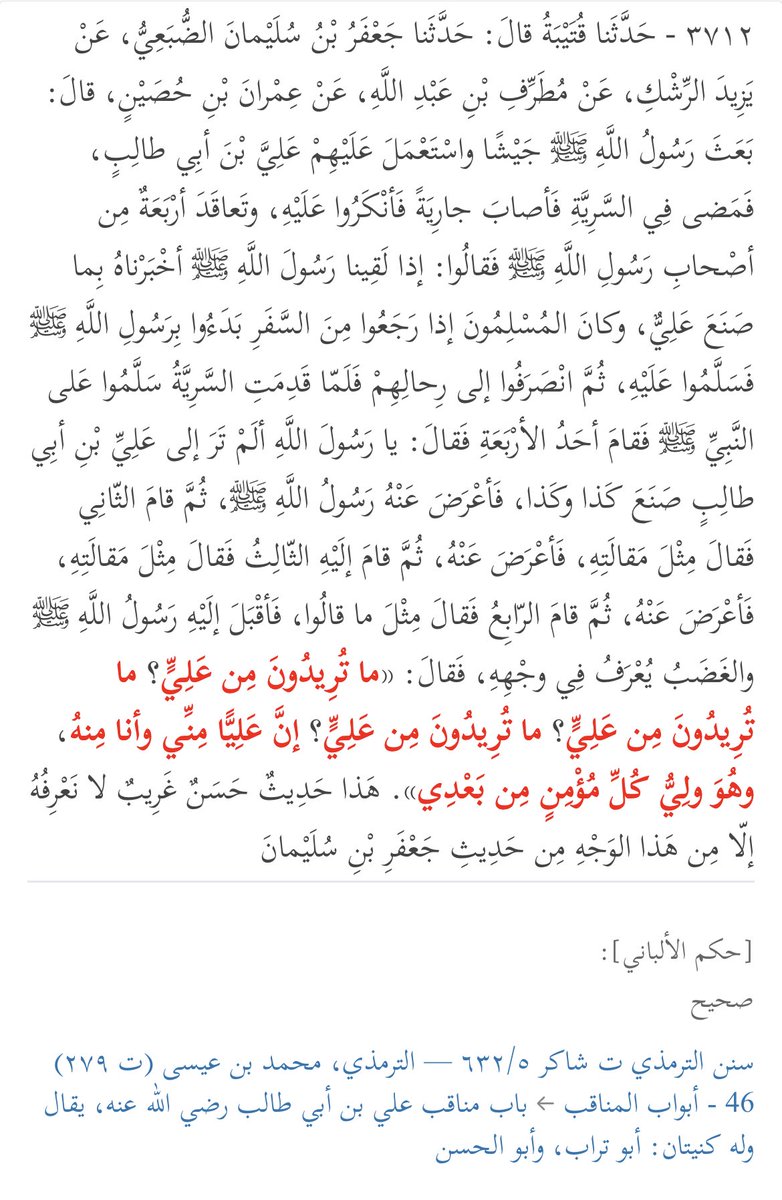 ٣٧١٢ - حَدَّثَنا قُتَيْبَةُ قالَ: حَدَّثَنا جَعْفَرُ بْنُ سُلَيْمانَ الضُّبَعِيُّ، عَنْ
يَزِيدَ الرِّشْكِ، عَنْ مُطَرِّفِ بْنِ عَبْدِ اللَّهِ، عَنْ عِمْرانَ بْنِ حُصَيْنٍ، قالَ:
بَعَثَ رَسُولُ اللَّهِ ﷺ جَيْشًا واسْتَعْمَلَ عَلَيْهِمْ عَلِيَّ بْنَ أبِي طالِبٍ،
فَمَضى فِي السَّرِيَّةِ فَأصابَ جارِيَةً فَأنْكَرُوا عَلَيْهِ، وتَعاقَدَ أرْبَعَةٌ مِن
أصْحابِ رَسُولِ اللَّهِ ﷺ فَقالُوا: إذا لَقِينا رَسُولَ اللَّهِ ﷺ أخْبَرْناهُ بِما
صَنَعَ عَلِيٌّ، وكانَ المُسْلِمُونَ إذا رَجَعُوا مِنَ السَّفَرِ بَدَءُوا بِرَسُولِ اللَّهِ ﷺ
فَسَلَّمُوا عَلَيْهِ، ثُمَّ انْصَرَفُوا إلى رِحالِهِمْ فَلَمّا قَدِمَتِ السَّرِيَّةُ سَلَّمُوا عَلى
النَّبِيِّ ﷺ فَقامَ أحَدُ الأرْبَعَةِ فَقالَ: يا رَسُولَ اللَّهِ ألَمْ تَرَ إلى عَلِيِّ بْنِ أبِي
طالِبٍ صَنَعَ كَذا وكَذا، فَأعْرَضَ عَنْهُ رَسُولُ اللَّهِ ﷺ، ثُمَّ قامَ الثّانِي
فَقالَ مِثْلَ مَقالَتِهِ، فَأعْرَضَ عَنْهُ، ثُمَّ قامَ إلَيْهِ الثّالِثُ فَقالَ مِثْلَ مَقالَتِهِ،
فَأعْرَضَ عَنْهُ، ثُمَّ قامَ الرّابِعُ فَقالَ مِثْلَ ما قالُوا، فَأقْبَلَ إلَيْهِ رَسُولُ اللَّهِ ﷺ
والغَضَبُ يُعْرَفُ فِي وجْهِهِ، فَقالَ: «ما تُرِيدُونَ مِن عَلِيٍّ؟ ما
تُرِيدُونَ مِن عَلِيٍّ؟ ما تُرِيدُونَ مِن عَلِيٍّ؟ إنَّ عَلِيًّا مِنِّي وأنا مِنهُ،
وهُوَ ولِيُّ كُلِّ مُؤْمِنٍ مِن بَعْدِي». هَذا حَدِيثٌ حَسَنٌ غَرِيبٌ لا نَعْرِفُهُ
إلّا مِن هَذا الوَجْهِ مِن حَدِيثِ جَعْفَرِ بْنِ سُلَيْمانَ
[حكم الألباني]:
صحيح
سنن الترمذي ت شاكر ٦٣٢/٥ — الترمذي، محمد بن عيسى (ت ٢٧٩)
46 - أبواب المناقب ← باب مناقب علي بن أبي طالب رضي الله عنه، يقال
وله كنيتان: أبو تراب، وأبو الحسن